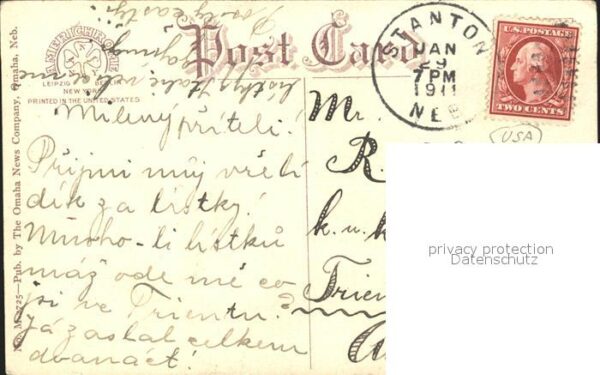 Post Card
AMERICHROME
LEIPZIG
NEW YORK
PRINTED IN THE UNITED STATES
No. M-2725—Pub. by The Omaha News Company, Omaha, Neb.
STANTON
JAN
29
7 PM
1911
NEB
U.S. POSTAGE
TWO CENTS
USA
Milený příteli!
Přijmi můj vřelí
dík za lístky!
Mnoho-li lístků
máž ode mě co
jsi ve Trientu?
Já zaslal celkem
dvanáct!
Mr.
R.
k.u.k
Trien
privacy protection
Datenschutz